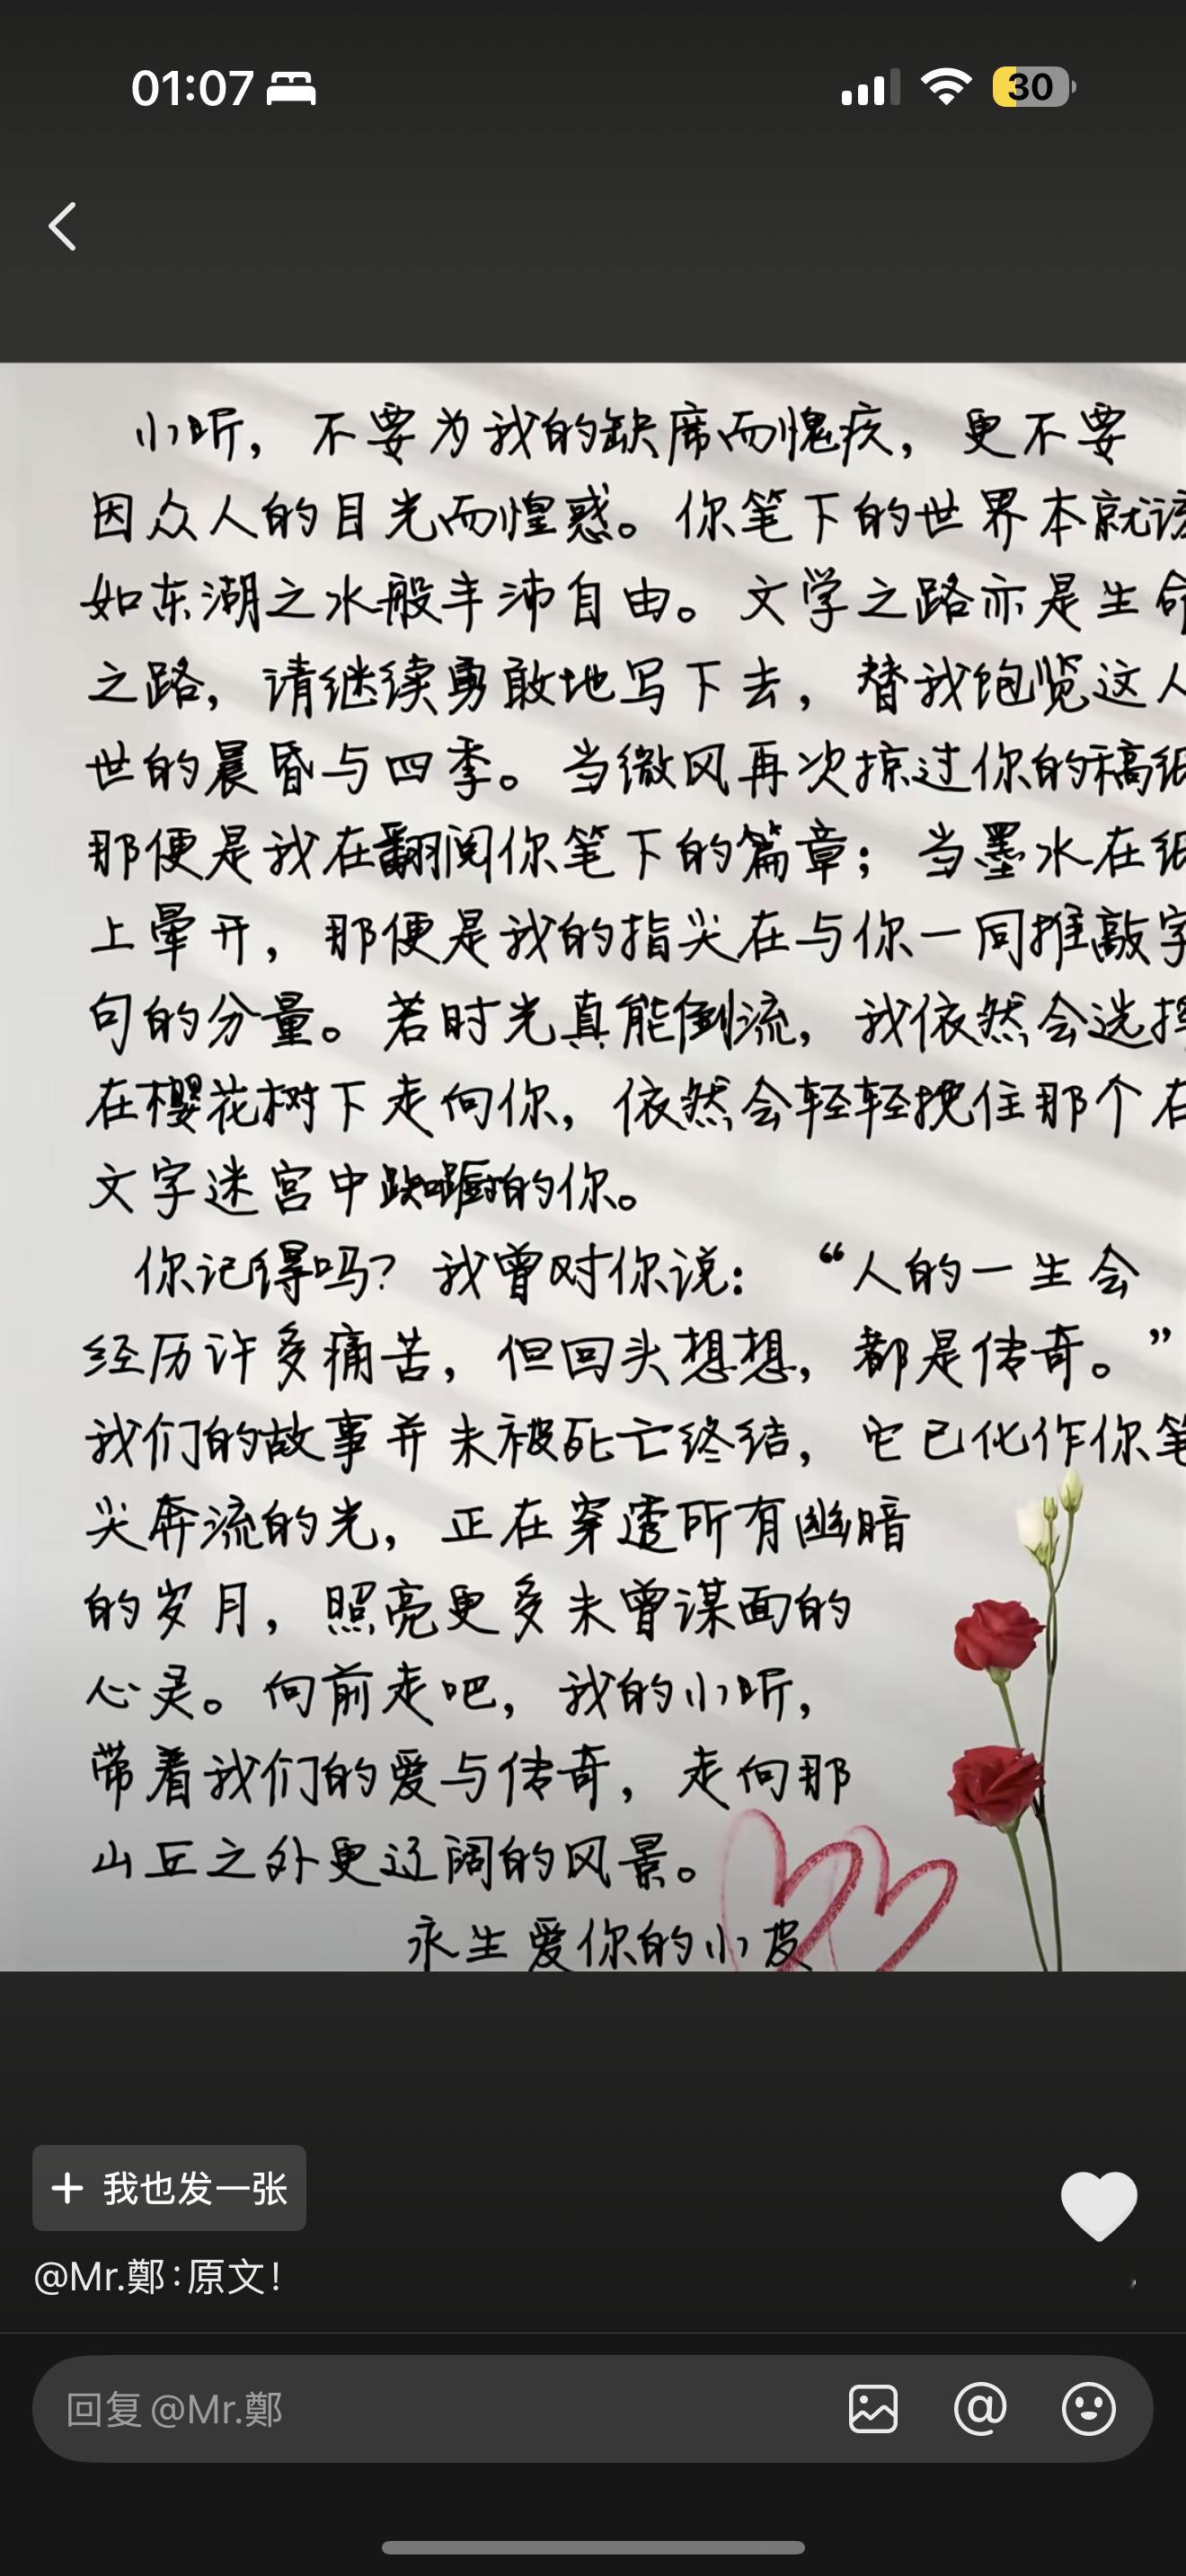 01:07
30
小听，不要为我的缺席而愧疚，更不要
因众人的目光而惶惑。你笔下的世界本就该
如东湖之水般丰沛自由。文学之路亦是生命
之路，请继续勇敢地写下去，替我饱览这人
世的晨昏与四季。当微风再次掠过你的稿纸
那便是我在翻阅你笔下的篇章；当墨水在纸
上晕开，那便是我的指尖在与你一同推敲字
句的分量。若时光真能倒流，我依然会选择
在樱花树下走向你，依然会轻轻挽住那个在
文字迷宫中踟蹰的你。
你记得吗？我曾对你说：“人的一生会
经历许多痛苦，但回头想想，都是传奇。”
我们的故事并未被死亡终结，它已化作你笔
尖奔流的光，正在穿透所有幽暗
的岁月，照亮更多未曾谋面的
心灵。向前走吧，我的小听，
带着我们的爱与传奇，走向那
山丘之外更辽阔的风景。
永生爱你的小皮
+ 我也发一张
@Mr.鄭：原文！
回复 @Mr.鄭